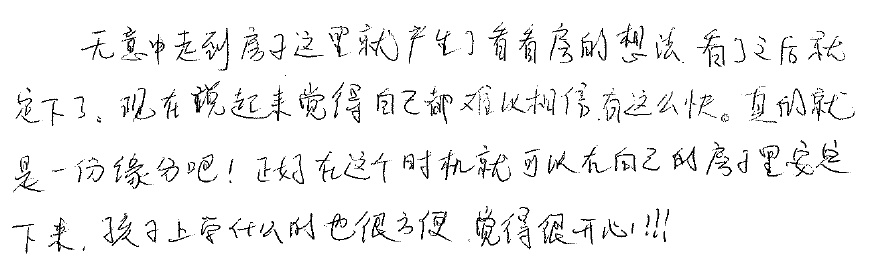 无意中走到房子这里就产生了看看房的想法,看了之后就
定下了、现在说起来觉得自己都难以相信,有这么快。真的就
是一份缘分吧!正好在这个时机就可以在自己的房子里安定
下来,孩子上学什么的也很方便,觉得很开心!!!